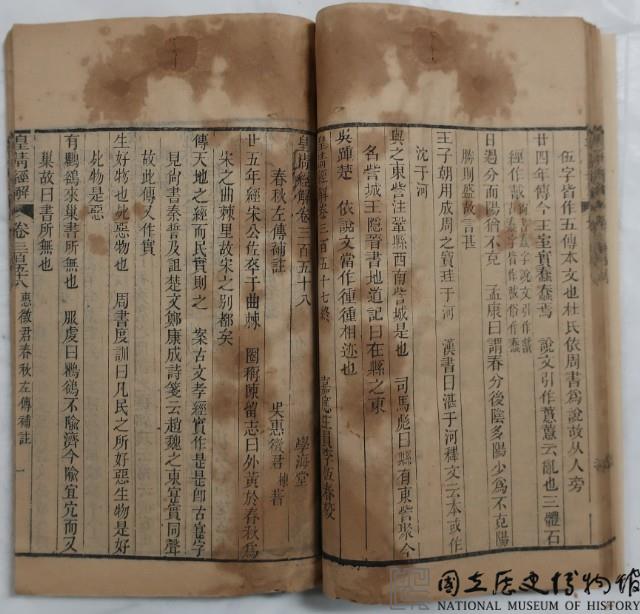 伍字皆作五傳本文也杜氏依周書為說故从人旁
廿四年傳今王室實蠢蠢焉 說文引作惷惷云亂也三體石
經作
日過分而陽猶不克 孟康曰謂春分後陰多陽少為不克陽
勝則盛故言甚
王子朝用成周之寶珪于河 漢書曰湛于河釋文云本或作
沈于河
與之東訾注鞏縣西南訾城是也 司馬彪曰縣有東訾聚今
名訾城王隱晉書地道記曰在縣之東
吳踵楚 依說文當作歱歱相迹也
皇清經解卷三百五十七終 嘉應生員李恆春校
皇清經解卷三百五十八 學海堂
春秋左傳補註 惠徵君棟著
廿五年經宋公佐卒于曲棘 圈稱陳留志曰外黃於春秋為
宋之曲棘里故宋之別都矣
傳天地之經而民實則之 案古文孝經實作是是即古寔字
見尚書秦誓及詛楚文鄭康成詩箋云趙魏之東寔實同聲
故此傳又作實
生好物也死惡物也 周書度訓曰凡民之所好惡生物是好
死物是惡
有鸜鵒來巢書所無也 服虔曰鸜鵒不隃濟今隃宜穴而又
巢故曰書所無也
皇清經解 卷三百五十八 惠徵君春秋左傳補註 一
國立歷史博物館
NATIONAL MUSEUM OF HISTORY